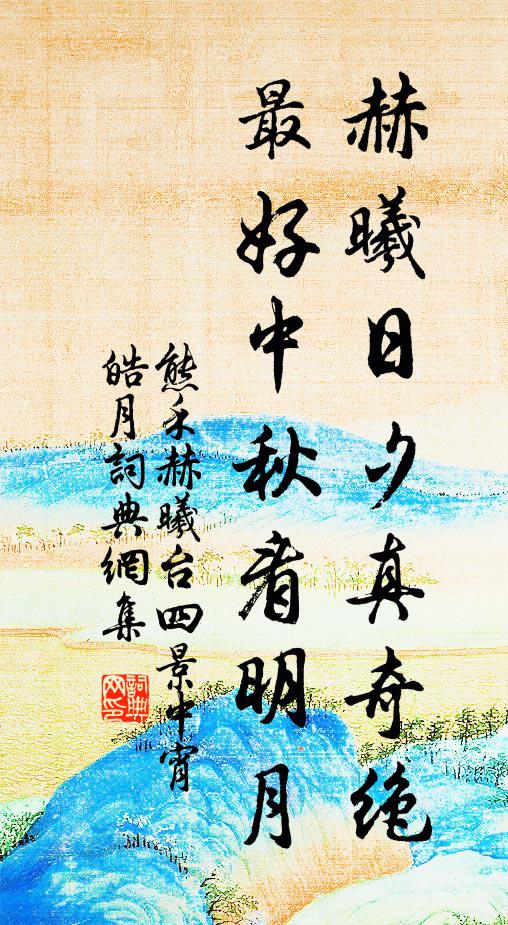 赫曦日夕真奇绝
最好中秋看明月
熊禾赫曦台四景中宵
皓月詞典網集
詞典网印